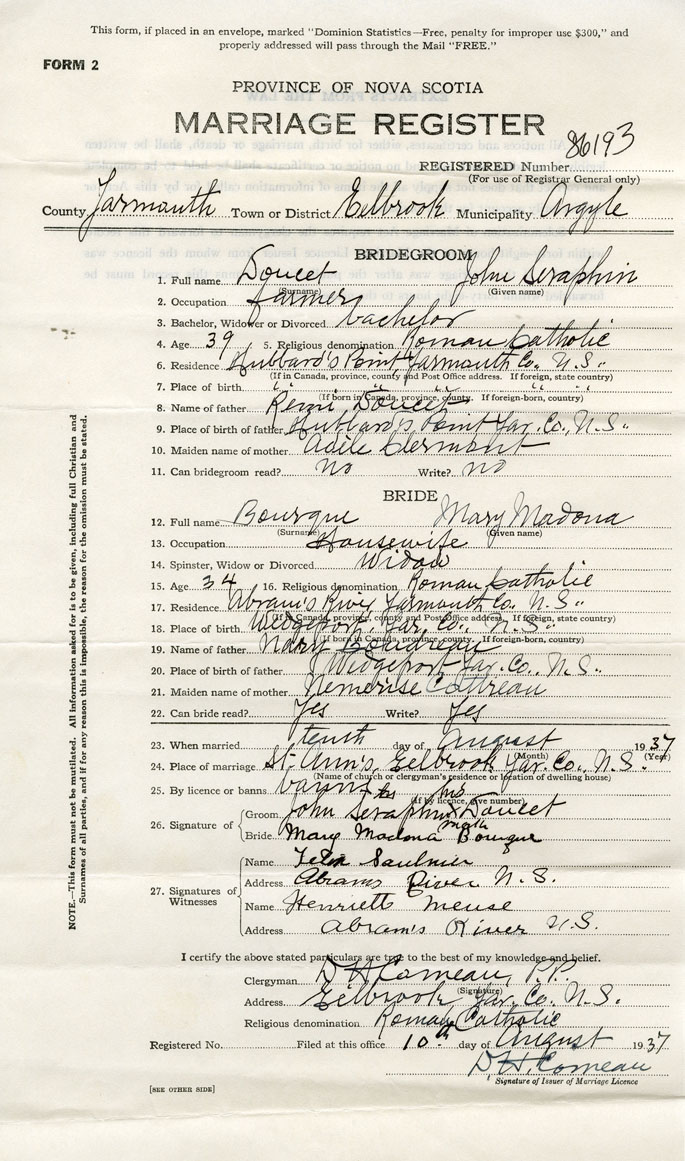 This form, if placed in an envelope, marked "Dominion Statistics—Free, penalty for improper use $300," and
properly addressed will pass through the Mail "FREE."
FORM 2
PROVINCE OF NOVA SCOTIA
MARRIAGE REGISTER
REGISTERED Number 86193
(For use of Registrar General only)
County Yarmouth Town or District Eelbrook Municipality Argyle
BRIDEGROOM
1. Full name Doucet John Seraphin
(Surname) (Given name)
2. Occupation farmer
3. Bachelor, Widower or Divorced bachelor
4. Age 39 5. Religious denomination Roman Catholic
6. Residence Hubbard's Point, Yarmouth Co. N.S.
(If in Canada, province, county and Post Office address. If foreign, state country)
7. Place of birth " " " "
(If born in Canada, province, county. If foreign-born, country)
8. Name of father Remi Doucet
9. Place of birth of father Hubbard's Point Yar. Co., N.S.
10. Maiden name of mother Adèle Clermont
11. Can bridegroom read? no Write? no
BRIDE
12. Full name Bourque Mary Madona
(Surname) (Given name)
13. Occupation Housewife
14. Spinster, Widow or Divorced Widow
15. Age 34 16. Religious denomination Roman Catholic
17. Residence Abram's River Yarmouth Co. N.S.
(If in Canada, province, county and Post Office address. If foreign, state country)
18. Place of birth Wedgeport, Yar. Co., N.S.
(If born in Canada, province, county. If foreign-born, country)
19. Name of father Boudreau
20. Place of birth of father Wedgeport Yar. Co., N.S.
21. Maiden name of mother Nemerise Cottreau
22. Can bride read? Yes Write? Yes
23. When married tenth day of August 1937
(Month) (Year)
24. Place of marriage St. Ann's, Eelbrook Yar. Co., N.S.
(Name of church or clergyman's residence or location of dwelling house)
25. By licence or banns banns
(If by licence, give number)
his
26. Signature of Groom John Seraphin X Doucet
mark
Bride Mary Madona Bourque
27. Signatures of Witnesses
Name Saulnier
Address Abrams River N.S.
Name Henriette Meuse
Address Abram's River N.S.
I certify the above stated particulars are true to the best of my knowledge and belief.
Clergyman D H Comeau, P.P.
(Signature)
Address Eelbrook Yar. Co. N.S.
Religious denomination Roman Catholic
Registered No. Filed at this office 10th day of August 1937
D. H. Comeau
Signature of Issuer of Marriage Licence
[SEE OTHER SIDE]
NOTE.—This form must not be mutilated. All information asked for is to be given, including full Christian and
Surnames of all parties, and if for any reason this is impossible, the reason for the omission must be stated.